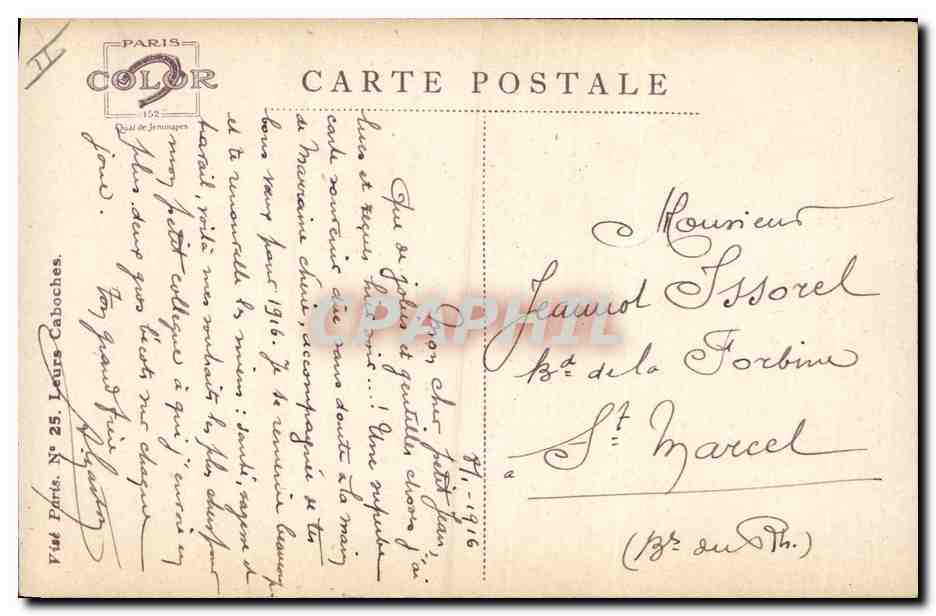 II
PARIS
COLOR
152
Quai de Jemmapes
CARTE POSTALE
8/1-1916
Mon cher petit Jean,
Que de jolies et gentilles choses j'ai
lues et reçues hier soir...! Une superbe
carte souvenir due sans doute à la main
de Marraine chérie, accompagnée de tes
bons vœux pour 1916. Je te remercie beaucoup
et te renouvelle les miens : santé, sagesse et
travail, voilà mes souhaits les plus chers pour
mon petit collègue à qui j'envoie en
plus deux gros bécots sur chaque
joue. Ton grand frère
Monsieur
Jeannot Issorel
Bd de la Forbine
à St Marcel
(B. du Rh.)
Visé Paris. No 25. Leurs Caboches.
CPAPHIL